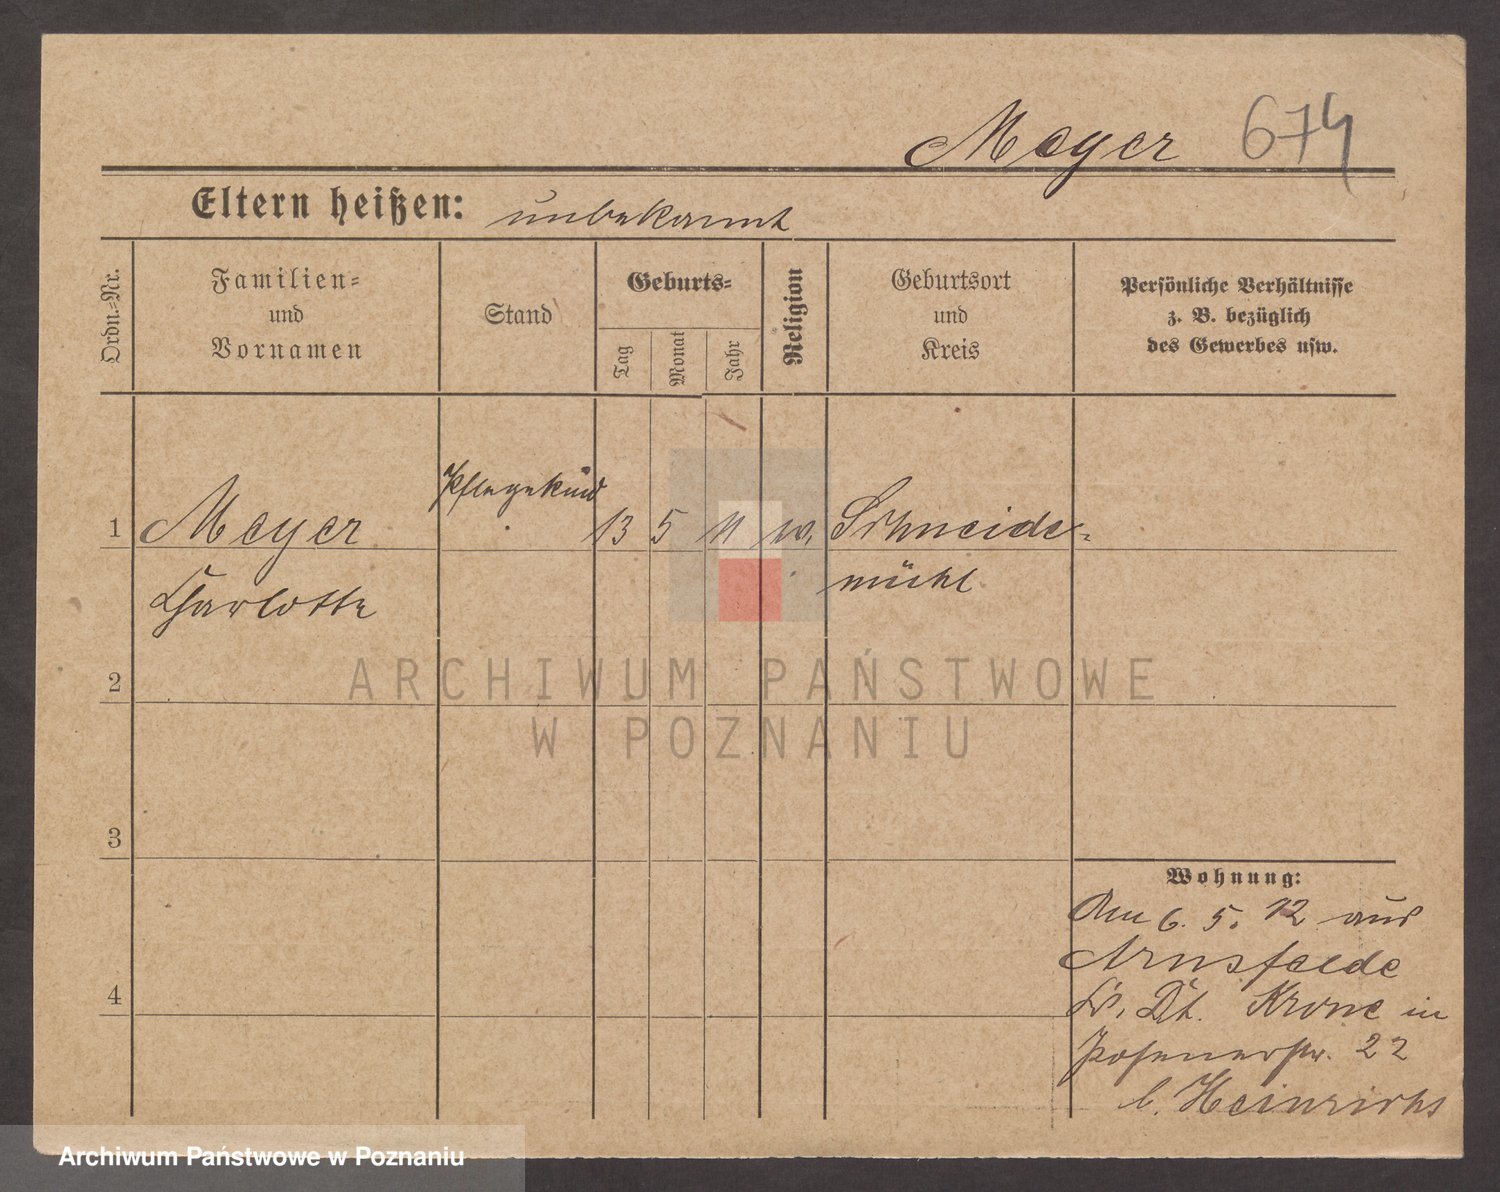 Meyer 674
Eltern heißen: unbekannt
Ordn.=Nr.
Familien=
und
Vornamen
Stand
Geburts=
Tag
Monat
Jahr
Religion
Geburtsort
und
Kreis
Persönliche Verhältnisse
z. B. bezüglich
des Gewerbes usw.
1 Meyer Pflegekind 13 5 11 Schneide=
Charlotte mühl
2
3
4
Wohnung:
Am 6. 5. 12 aus
Arnsfelde
Dt. Krone in
Posenerstr. 22
b. Heinrichs
ARCHIWUM PAŃSTWOWE
W POZNANIU
Archiwum Państwowe w Poznaniu